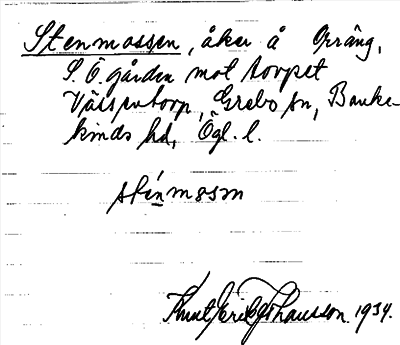 Stenmossen, åker å Orräng,
S. Ö. gården mot torpet
Värsutorp, Grebo sn, Banke-
kinds hd, Ögl. l.
sténmosm
Knut Erik Johansson 1934.